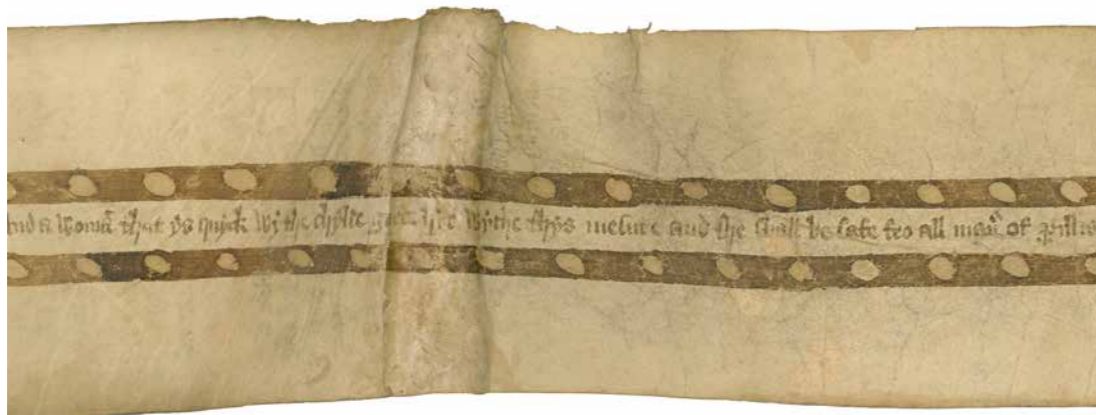 And a womā that ys quyck wythe chylde gere hir wythe thys mesure and she shall be safe fro all manr of perillis